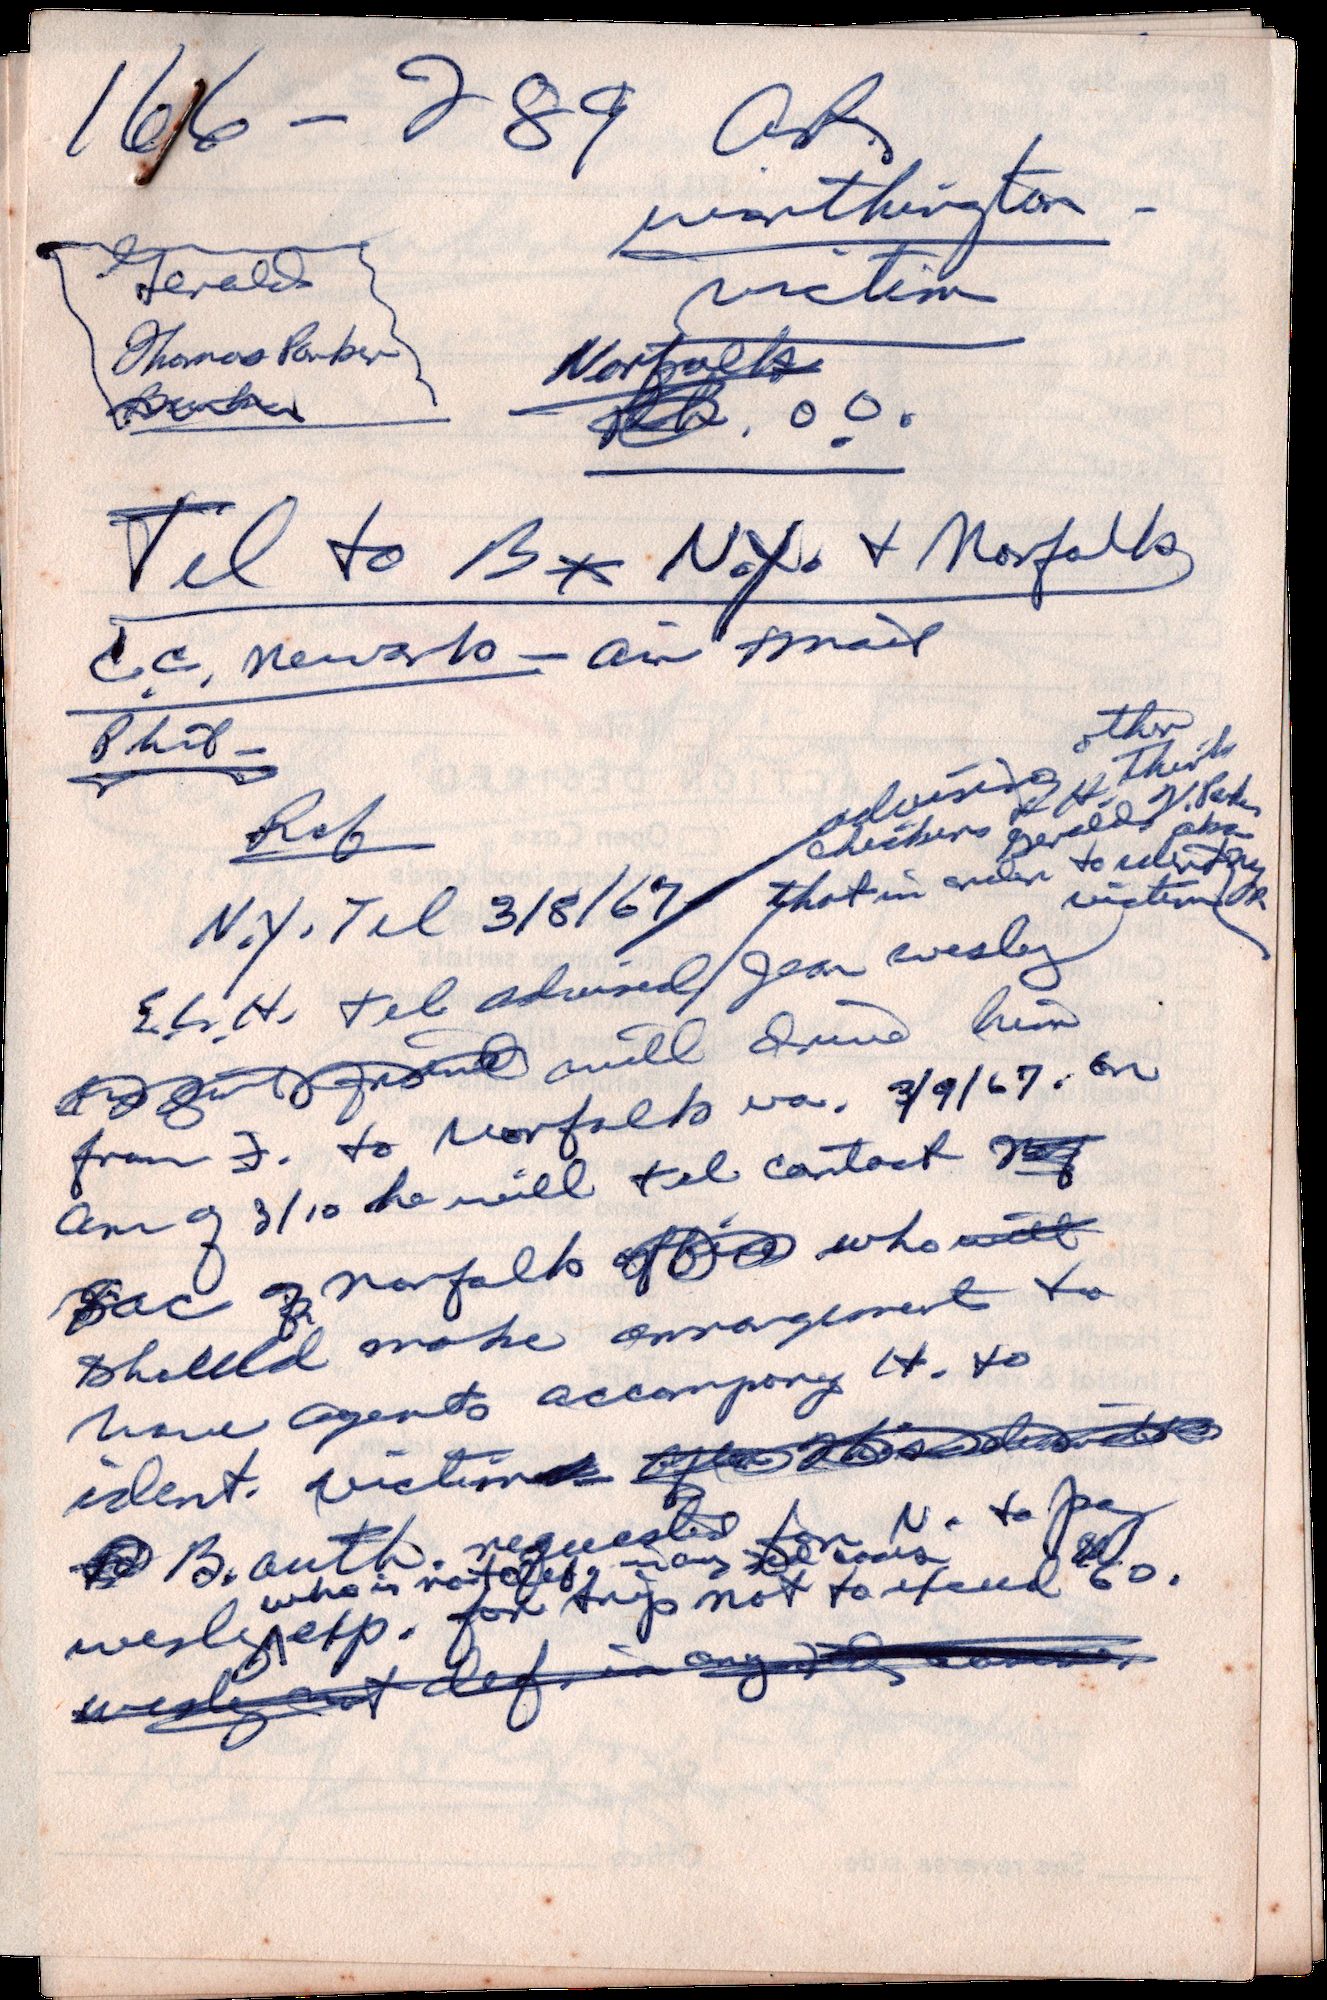 166-289
Worthington -
victim
Gerald
Thomas Parker
Norfolk
O.O.
Tel to B N.Y. + Norfolk
C.C. Newark - air mail
Phil -
Ref
N.Y. Tel 3/8/67
advising other
checkers & H. think
Gerald
that in order to identify
victim
E.L.H. tel advised Jean Wesley
will drive him
from to Norfolk va. 3/9/67. on
am of 3/10 he will tel contact
SAC of Norfolk who
should make arrangement to
have agents accompany H. to
ident. victim
B. auth. requested for N. to pay
who is not def. in any
Wesley exp. for trip not to exceed 60.
Wesley not def. in any